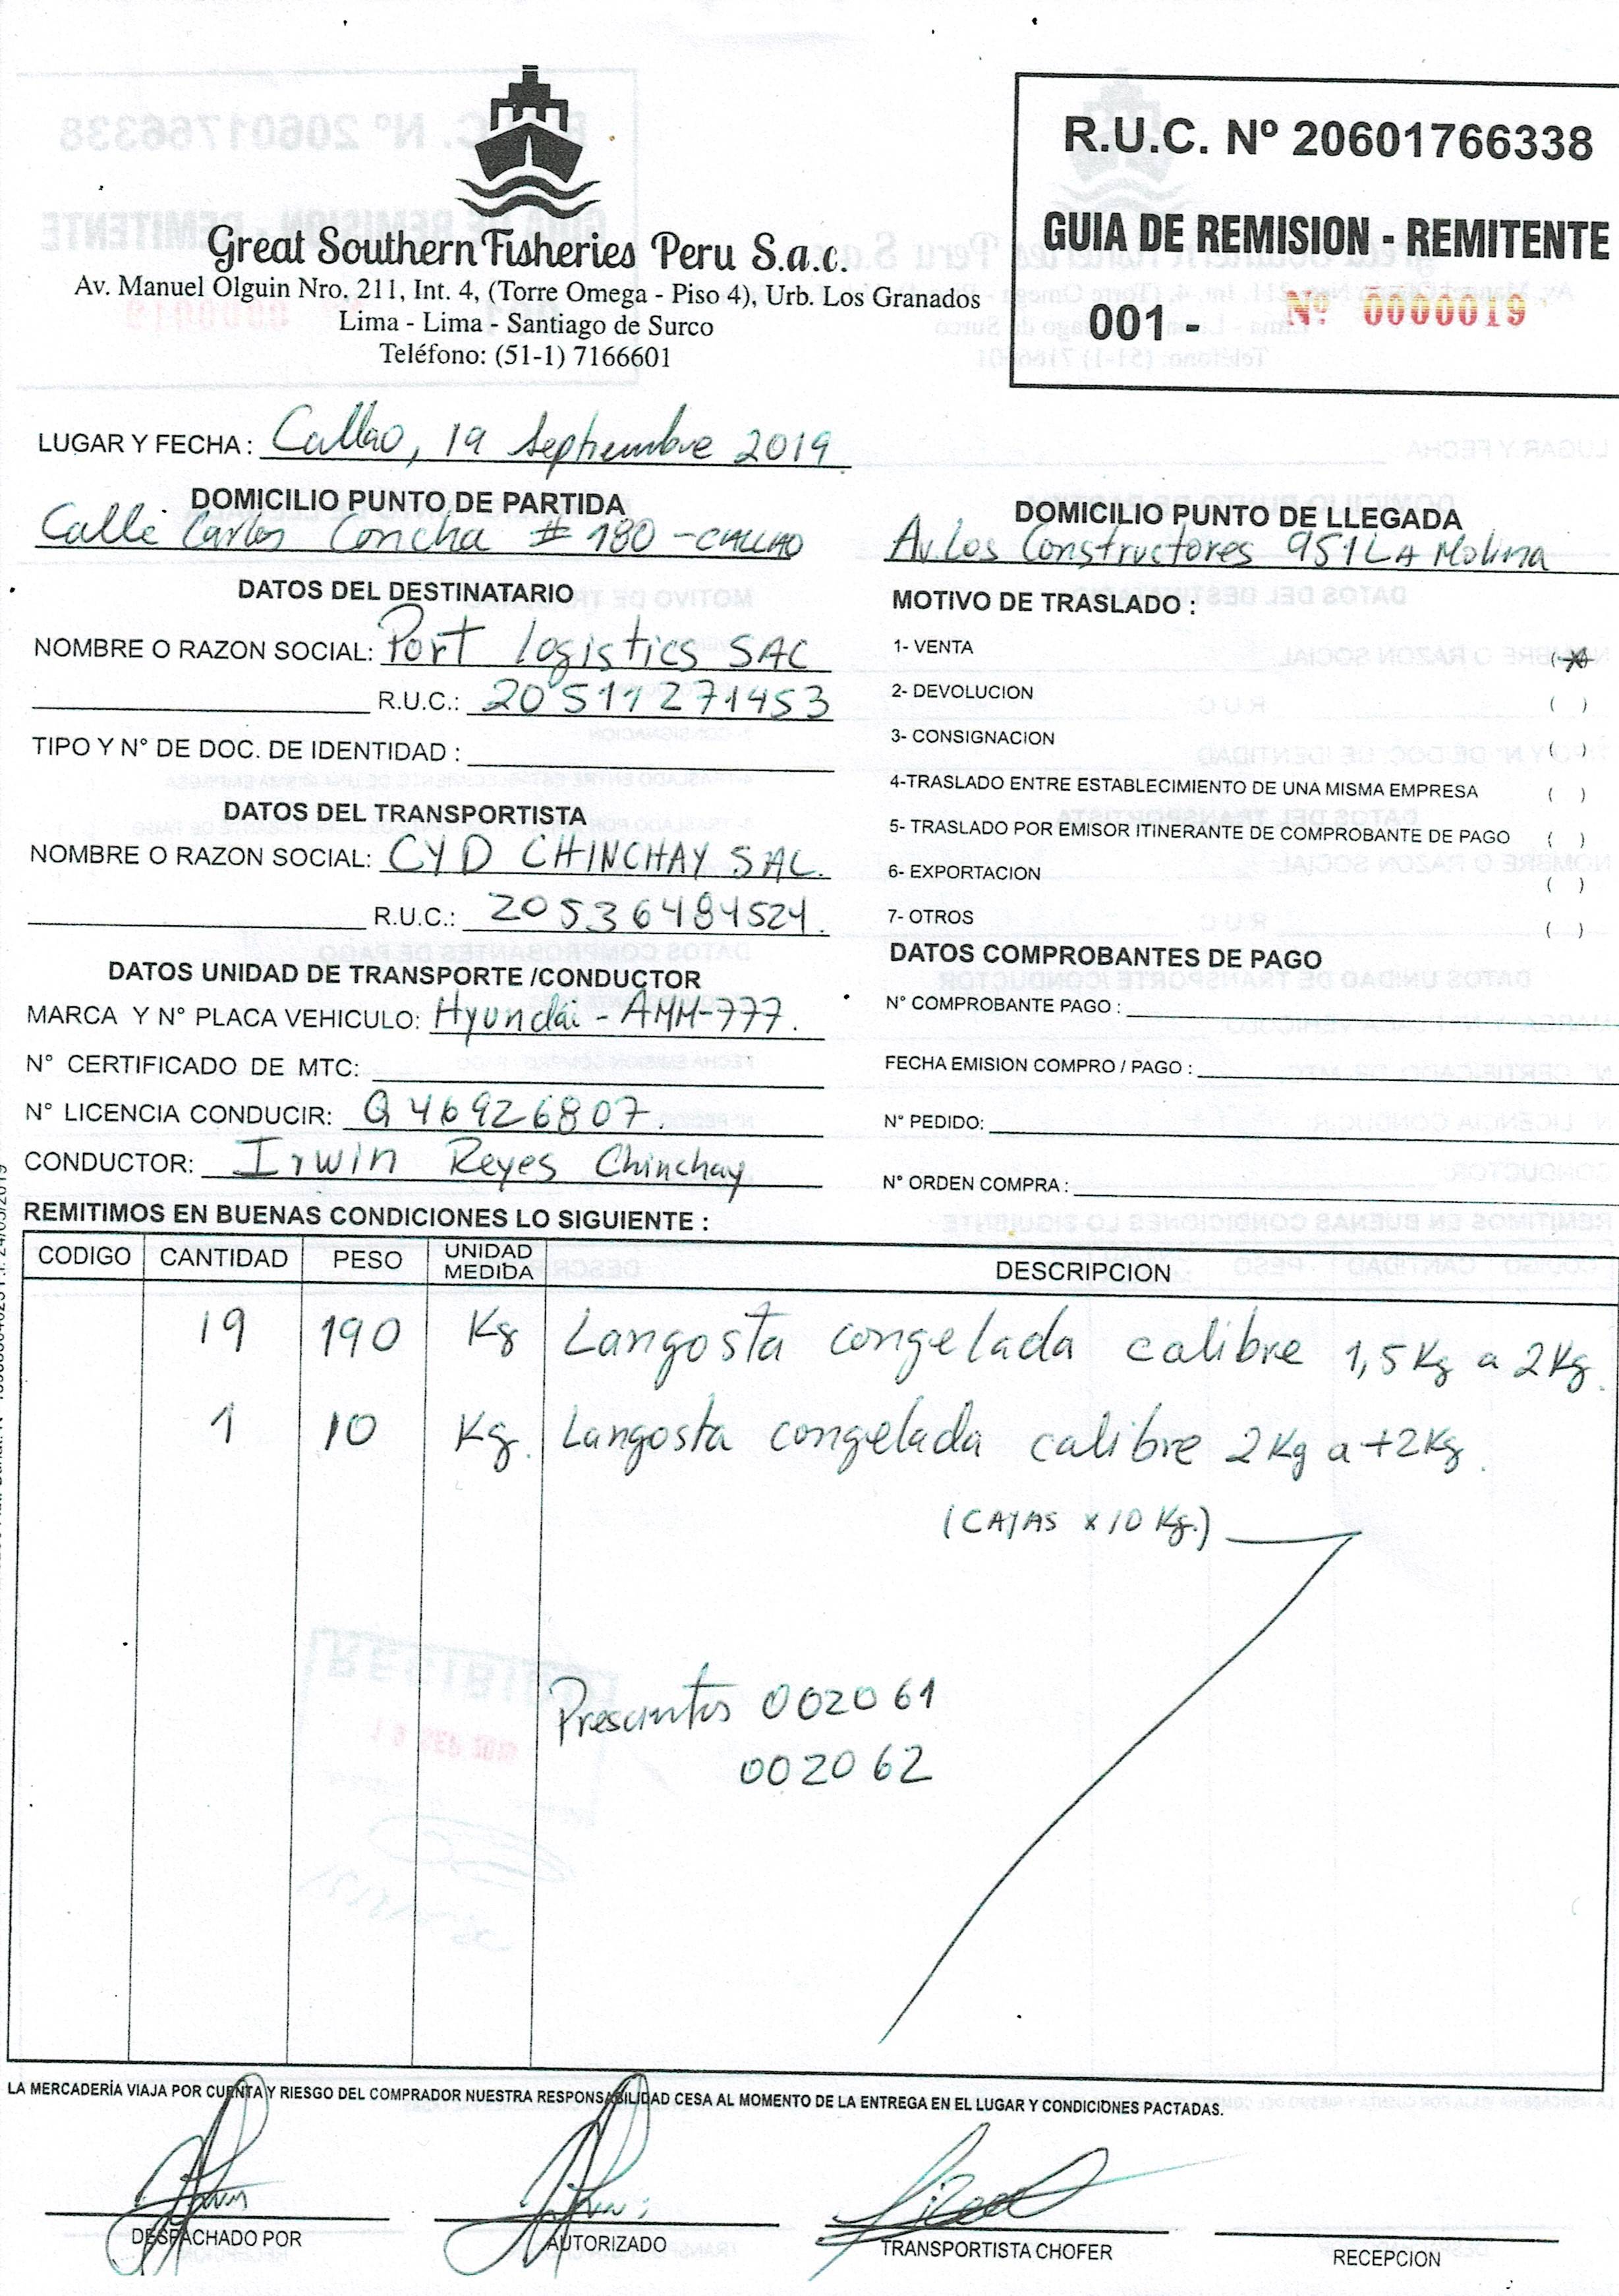 Great Southern Fisheries Peru S.a.c.
Av. Manuel Olguin Nro. 211, Int. 4, (Torre Omega - Piso 4), Urb. Los Granados
Lima - Lima - Santiago de Surco
Teléfono: (51-1) 7166601
R.U.C. Nº 20601766338
GUIA DE REMISION - REMITENTE
001 - Nº 0000019
LUGAR Y FECHA : Callao, 19 Septiembre 2019
DOMICILIO PUNTO DE PARTIDA
Calle Carlos Concha # 180 - CALLAO
DOMICILIO PUNTO DE LLEGADA
Av. Los Constructores 951 LA Molina
DATOS DEL DESTINATARIO
NOMBRE O RAZON SOCIAL: Port Logistics SAC
R.U.C.: 20511271453
TIPO Y N° DE DOC. DE IDENTIDAD :
DATOS DEL TRANSPORTISTA
NOMBRE O RAZON SOCIAL: CYD CHINCHAY SAC.
R.U.C.: 20536484524.
DATOS UNIDAD DE TRANSPORTE /CONDUCTOR
MARCA Y N° PLACA VEHICULO: Hyundai - AMM-777.
N° CERTIFICADO DE MTC:
N° LICENCIA CONDUCIR: Q46926807.
CONDUCTOR: Irwin Reyes Chinchay
MOTIVO DE TRASLADO :
1- VENTA (X)
2- DEVOLUCION ( )
3- CONSIGNACION ( )
4-TRASLADO ENTRE ESTABLECIMIENTO DE UNA MISMA EMPRESA ( )
5- TRASLADO POR EMISOR ITINERANTE DE COMPROBANTE DE PAGO ( )
6- EXPORTACION ( )
7- OTROS ( )
DATOS COMPROBANTES DE PAGO
N° COMPROBANTE PAGO :
FECHA EMISION COMPRO / PAGO :
N° PEDIDO:
N° ORDEN COMPRA :
REMITIMOS EN BUENAS CONDICIONES LO SIGUIENTE :
CODIGO CANTIDAD PESO UNIDAD MEDIDA DESCRIPCION
19 190 Kg Langosta congelada calibre 1,5Kg a 2Kg.
1 10 Kg. Langosta congelada calibre 2Kg a +2Kg.
(CAJAS x 10 Kg.)
Presuntos 002061
002062
LA MERCADERÍA VIAJA POR CUENTA Y RIESGO DEL COMPRADOR NUESTRA RESPONSABILIDAD CESA AL MOMENTO DE LA ENTREGA EN EL LUGAR Y CONDICIONES PACTADAS.
DESPACHADO POR
AUTORIZADO
TRANSPORTISTA CHOFER
RECEPCION